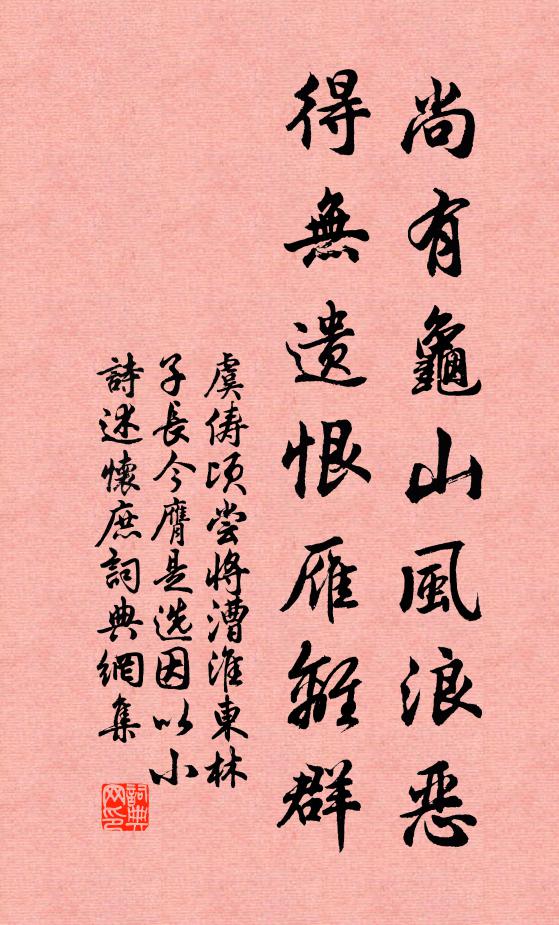 尚有龜山風浪惡
得無遺恨雁離群
虞儔頃嘗將漕淮東林
子長今膺是选因以小
詩述懷庶詞典網集
詞典
网印